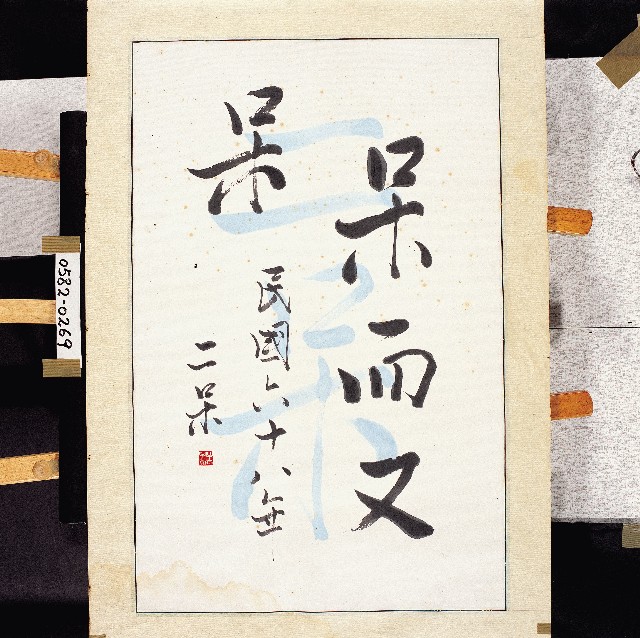 呆而又
呆
民國六十八年
二呆
二呆
0582-0269